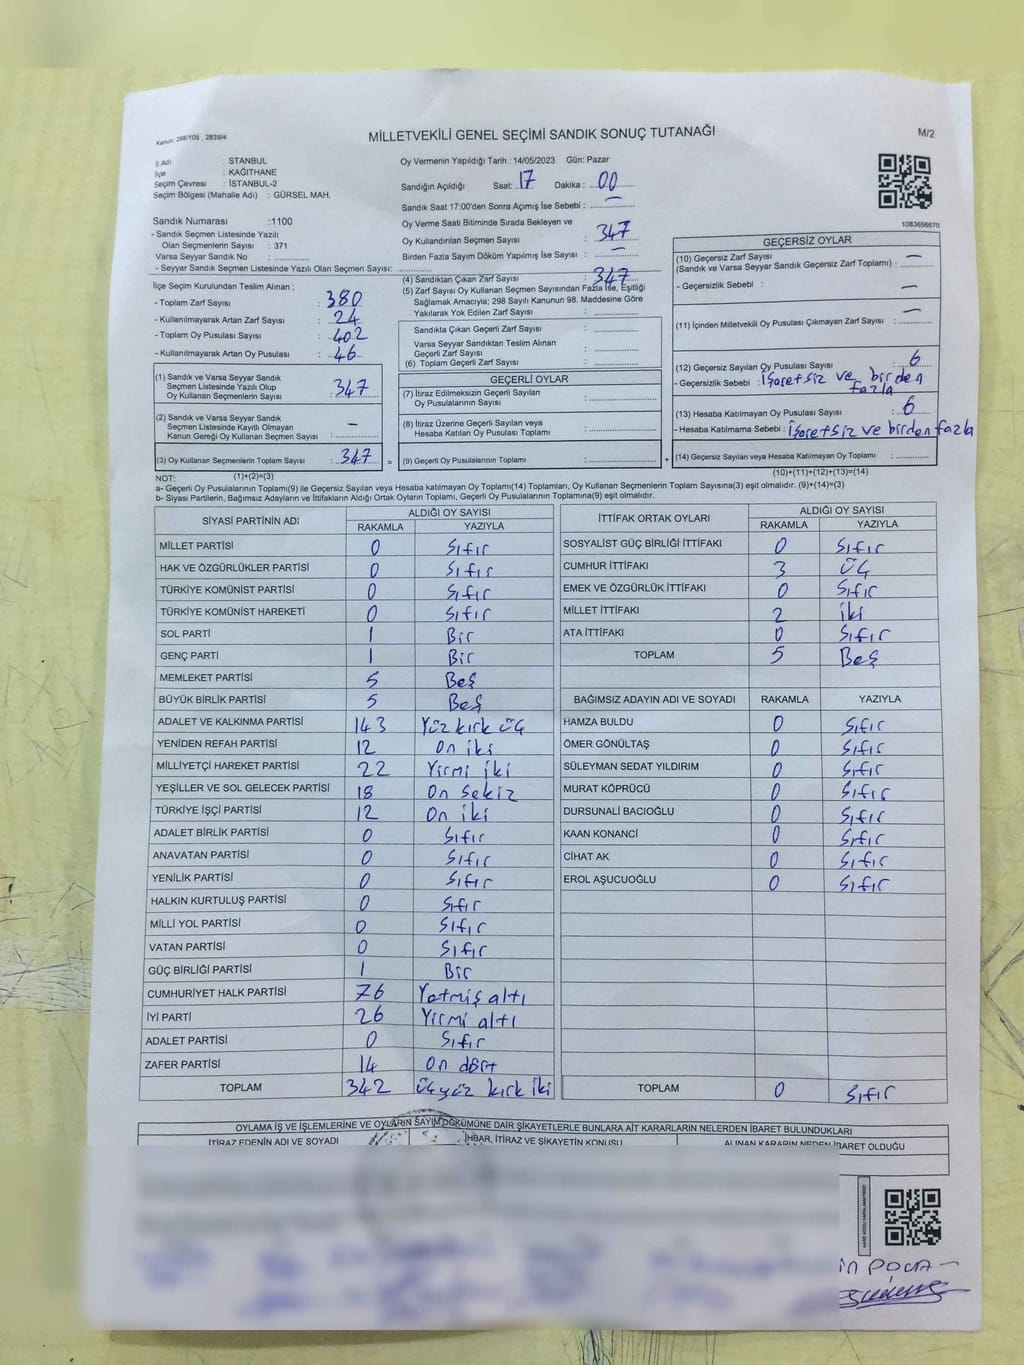 Kanun: 298/105 , 2839/4
MİLLETVEKİLİ GENEL SEÇİMİ SANDIK SONUÇ TUTANAĞI
M/2
İl Adı : STANBUL
İlçe : KAĞITHANE
Seçim Çevresi : İSTANBUL-2
Seçim Bölgesi (Mahalle Adı) : GÜRSEL MAH.
Oy Vermenin Yapıldığı Tarih : 14/05/2023 Gün: Pazar
Sandığın Açıldığı Saat: 17 Dakika : 00
Sandık Saat 17:00'den Sonra Açımış İse Sebebi : —
Sandık Numarası :1100
- Sandık Seçmen Listesinde Yazılı
Olan Seçmenlerin Sayısı : 371
Varsa Seyyar Sandık No :
- Seyyar Sandık Seçmen Listesinde Yazılı Olan Seçmen Sayısı:
Oy Verme Saati Bitiminde Sırada Bekleyen ve
Oy Kullandırılan Seçmen Sayısı : 347
Birden Fazla Sayım Döküm Yapılmış İse Sayısı : —
1083656670
İlçe Seçim Kurulundan Teslim Alınan ;
- Toplam Zarf Sayısı : 380
- Kullanılmayarak Artan Zarf Sayısı : 24
- Toplam Oy Pusulası Sayısı : 402
- Kullanılmayarak Artan Oy Pusulası : 46
(1) Sandık ve Varsa Seyyar Sandık
Seçmen Listesinde Yazılı Olup
Oy Kullanan Seçmenlerin Sayısı : 347
(2) Sandık ve Varsa Seyyar Sandık
Seçmen Listesinde Kayıtlı Olmayan
Kanun Gereği Oy Kullanan Seçmen Sayısı : —
(3) Oy Kullanan Seçmenlerin Toplam Sayısı : 347 =
(4) Sandıktan Çıkan Zarf Sayısı : 347
(5) Zarf Sayısı Oy Kullanan Seçmen Sayısından Fazla İse, Eşitliği
Sağlamak Amacıyla; 298 Sayılı Kanunun 98. Maddesine Göre
Yakılarak Yok Edilen Zarf Sayısı :
Sandıkta Çıkan Geçerli Zarf Sayısı :
Varsa Seyyar Sandıktan Teslim Alınan
Geçerli Zarf Sayısı :
(6) Toplam Geçerli Zarf Sayısı :
GEÇERLİ OYLAR
(7) İtiraz Edilmeksizin Geçerli Sayılan
Oy Pusulalarının Sayısı :
(8) İtiraz Üzerine Geçerli Sayılan veya
Hesaba Katılan Oy Pusulası Toplamı :
(9) Geçerli Oy Pusulalarının Toplamı : +
GEÇERSİZ OYLAR
(10) Geçersiz Zarf Sayısı
(Sandık ve Varsa Seyyar Sandık Geçersiz Zarf Toplamı) : —
- Geçersizlik Sebebi : —
(11) İçinden Milletvekili Oy Pusulası Çıkmayan Zarf Sayısı : —
(12) Geçersiz Sayılan Oy Pusulası Sayısı : 6
- Geçersizlik Sebebi : İşaretsiz ve birden
fazla
(13) Hesaba Katılmayan Oy Pusulası Sayısı : 6
- Hesaba Katılmama Sebebi : İşaretsiz ve birden fazla
(14) Geçersiz Sayılan veya Hesaba Katılmayan Oy Toplamı :
NOT: (1)+(2)=(3) (10)+(11)+(12)+(13)=(14)
a- Geçerli Oy Pusulalarının Toplamı(9) ile Geçersiz Sayılan veya Hesaba katılmayan Oy Toplamı(14) Toplamları, Oy Kullanan Seçmenlerin Toplam Sayısına(3) eşit olmalıdır. (9)+(14)=(3)
b- Siyasi Partilerin, Bağımsız Adayların ve İttifakların Aldığı Ortak Oyların Toplamı, Geçerli Oy Pusulalarının Toplamına(9) eşit olmalıdır.
SİYASİ PARTİNİN ADI ALDIĞI OY SAYISI
RAKAMLA YAZIYLA
MİLLET PARTİSİ 0 Sıfır
HAK VE ÖZGÜRLÜKLER PARTİSİ 0 Sıfır
TÜRKİYE KOMÜNİST PARTİSİ 0 Sıfır
TÜRKİYE KOMÜNİST HAREKETİ 0 Sıfır
SOL PARTİ 1 Bir
GENÇ PARTİ 1 Bir
MEMLEKET PARTİSİ 5 Beş
BÜYÜK BİRLİK PARTİSİ 5 Beş
ADALET VE KALKINMA PARTİSİ 143 Yüz kırk üç
YENİDEN REFAH PARTİSİ 12 On iki
MİLLİYETÇİ HAREKET PARTİSİ 22 Yirmi iki
YEŞİLLER VE SOL GELECEK PARTİSİ 18 On sekiz
TÜRKİYE İŞÇİ PARTİSİ 12 On iki
ADALET BİRLİK PARTİSİ 0 Sıfır
ANAVATAN PARTİSİ 0 Sıfır
YENİLİK PARTİSİ 0 Sıfır
HALKIN KURTULUŞ PARTİSİ 0 Sıfır
MİLLİ YOL PARTİSİ 0 Sıfır
VATAN PARTİSİ 0 Sıfır
GÜÇ BİRLİĞİ PARTİSİ 1 Bir
CUMHURİYET HALK PARTİSİ 76 Yetmiş altı
İYİ PARTİ 26 Yirmi altı
ADALET PARTİSİ 0 Sıfır
ZAFER PARTİSİ 14 On dört
TOPLAM 342 Üçyüz kırk iki
İTTİFAK ORTAK OYLARI ALDIĞI OY SAYISI
RAKAMLA YAZIYLA
SOSYALİST GÜÇ BİRLİĞİ İTTİFAKI 0 Sıfır
CUMHUR İTTİFAKI 3 Üç
EMEK VE ÖZGÜRLÜK İTTİFAKI 0 Sıfır
MİLLET İTTİFAKI 2 İki
ATA İTTİFAKI 0 Sıfır
TOPLAM 5 Beş
BAĞIMSIZ ADAYIN ADI VE SOYADI RAKAMLA YAZIYLA
HAMZA BULDU 0 Sıfır
ÖMER GÖNÜLTAŞ 0 Sıfır
SÜLEYMAN SEDAT YILDIRIM 0 Sıfır
MURAT KÖPRÜCÜ 0 Sıfır
DURSUNALİ BACIOĞLU 0 Sıfır
KAAN KONANCİ 0 Sıfır
CİHAT AK 0 Sıfır
EROL AŞUCUOĞLU 0 Sıfır
TOPLAM 0 Sıfır
OYLAMA İŞ VE İŞLEMLERİNE VE OYLARIN SAYIM DÖKÜMÜNE DAİR ŞİKAYETLERLE BUNLARA AİT KARARLARIN NELERDEN İBARET BULUNDUKLARI
İTİRAZ EDENİN ADI VE SOYADI İHBAR, İTİRAZ VE ŞİKAYETİN KONUSU ALINAN KARARIN NEDEN İBARET OLDUĞU